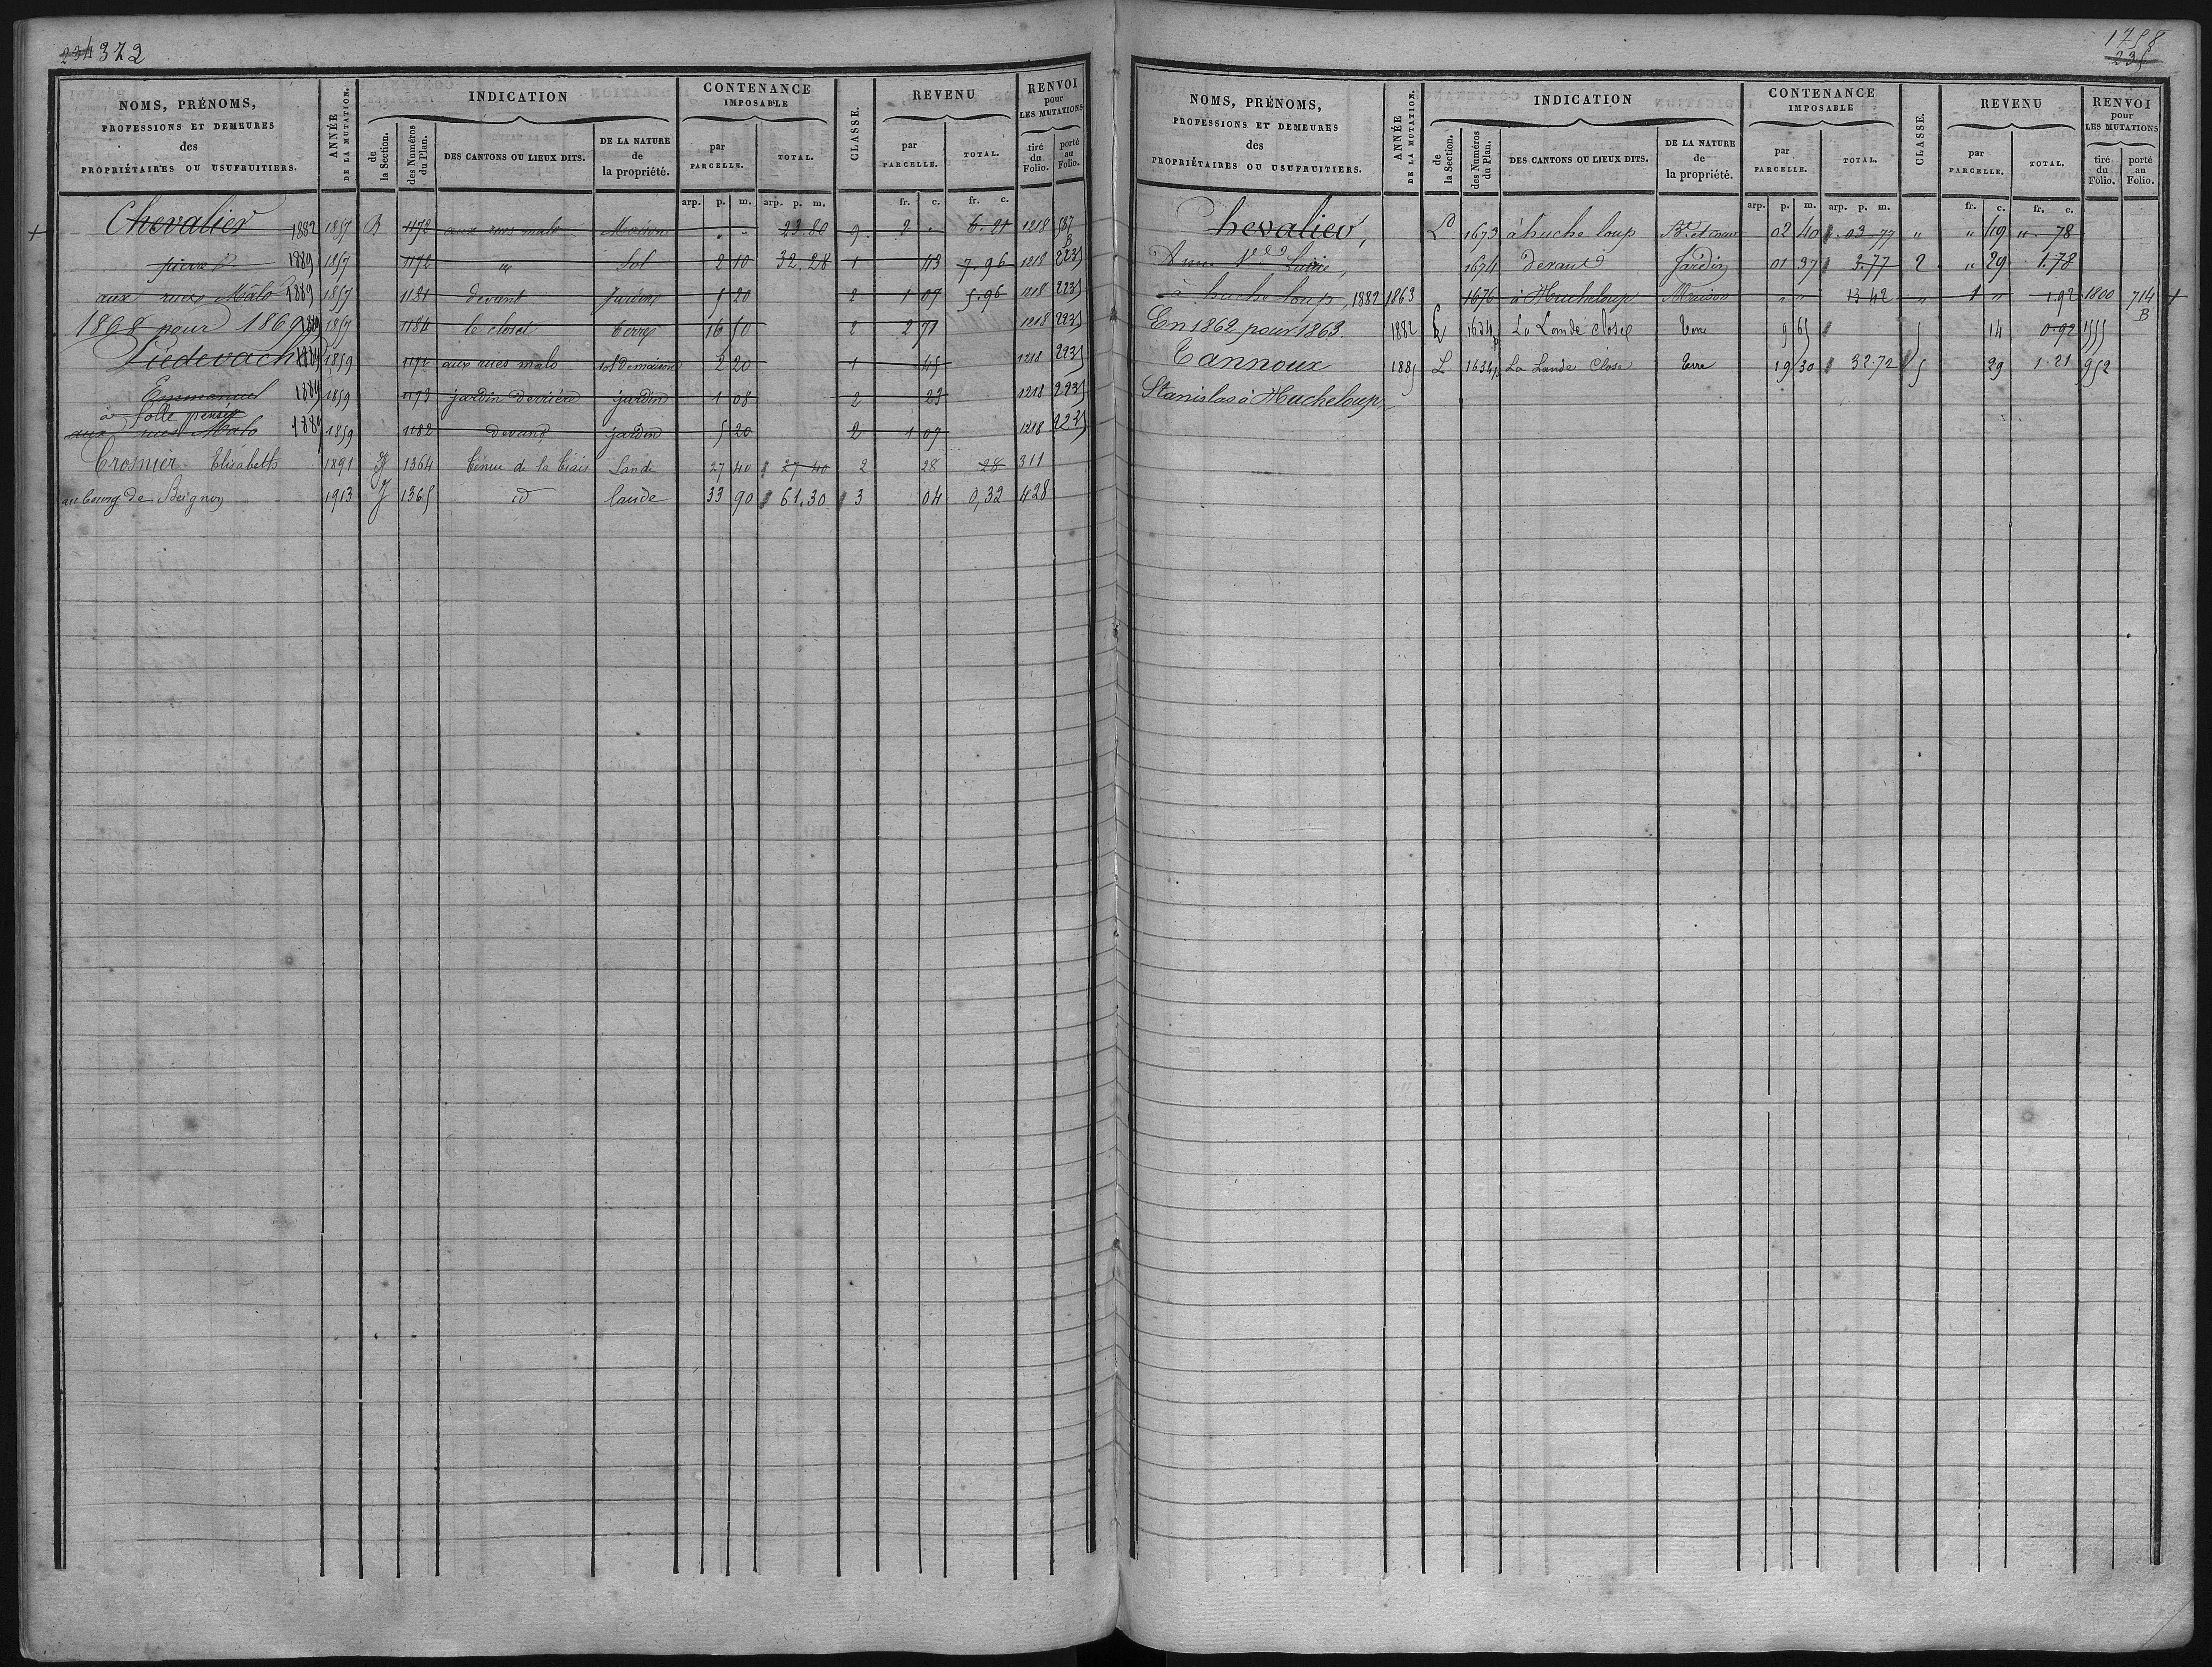 234 372
NOMS, PRÉNOMS, PROFESSIONS ET DEMEURES des PROPRIÉTAIRES OU USUFRUITIERS. | ANNÉE DE LA MUTATION. | INDICATION | CONTENANCE IMPOSABLE | CLASSE. | REVENU | RENVOI pour LES MUTATIONS
de la Section. | des Numéros du Plan. | DES CANTONS OU LIEUX DITS. | DE LA NATURE de la propriété. | par PARCELLE. | TOTAL. | par PARCELLE. | TOTAL. | tiré du Folio. | porté au Folio.
arp. p. m. arp. p. m. fr. c. fr. c.
Chevalier 1882 1857 B 1172 aux rues malo Maison " " 23.80 9 2 . 6.21 1218 587 B
pierre 1889 1857 1172 " Sol 2 10 32.28 1 43 7.96 1218 2235
aux rues Malo 1889 1857 1181 devant Jardin 5 20 2 1 07 5.96 1218 2235
1868 pour 1869 1857 1184 le closet terre 16 50 2 2 71 1218 2235
Piedevache 1889 1859 1172 aux rues malo sol de maison 2 20 1 45 1218 2235
Emmanuel 1889 1859 1173 jardin derrière jardin 1 08 2 23 1218 2235
à folle pensée
aux rues Malo 1889 1859 1182 devant jardin 5 20 2 1 07 1218 2235
Crosnier Elisabeth 1891 J 1364 Tenue de la Ciais Lande 27 40 27 40 2 28 28 311
au bourg de Beignon 1913 J 1365 id lande 33 90 61.30 3 04 0,32 428
1758
235
NOMS, PRÉNOMS, PROFESSIONS ET DEMEURES des PROPRIÉTAIRES OU USUFRUITIERS. | ANNÉE DE LA MUTATION. | INDICATION | CONTENANCE IMPOSABLE | CLASSE. | REVENU | RENVOI pour LES MUTATIONS
de la Section. | des Numéros du Plan. | DES CANTONS OU LIEUX DITS. | DE LA NATURE de la propriété. | par PARCELLE. | TOTAL. | par PARCELLE. | TOTAL. | tiré du Folio. | porté au Folio.
arp. p. m. arp. p. m. fr. c. fr. c.
Chevalier, L 1673 à huche loup Bt. et cour 02 40 03.77 " " 49 " 78
Anne Louise, 1674 devant Jardin 01 37 3.77 2 " 29 1.78
à huche loup, 1882 1863 1676 à Hucheloup Maison " " 13 42 " 1 " 1.92 1800 714 B
En 1862 pour 1863. 1882 L 1634p La Lande close Terre 9 65 5 14 0.92 1555
Tannoux 1885 L 1634p La Lande Close Terre 19 30 32.72 5 29 1.21 952
Stanislas à Hucheloup